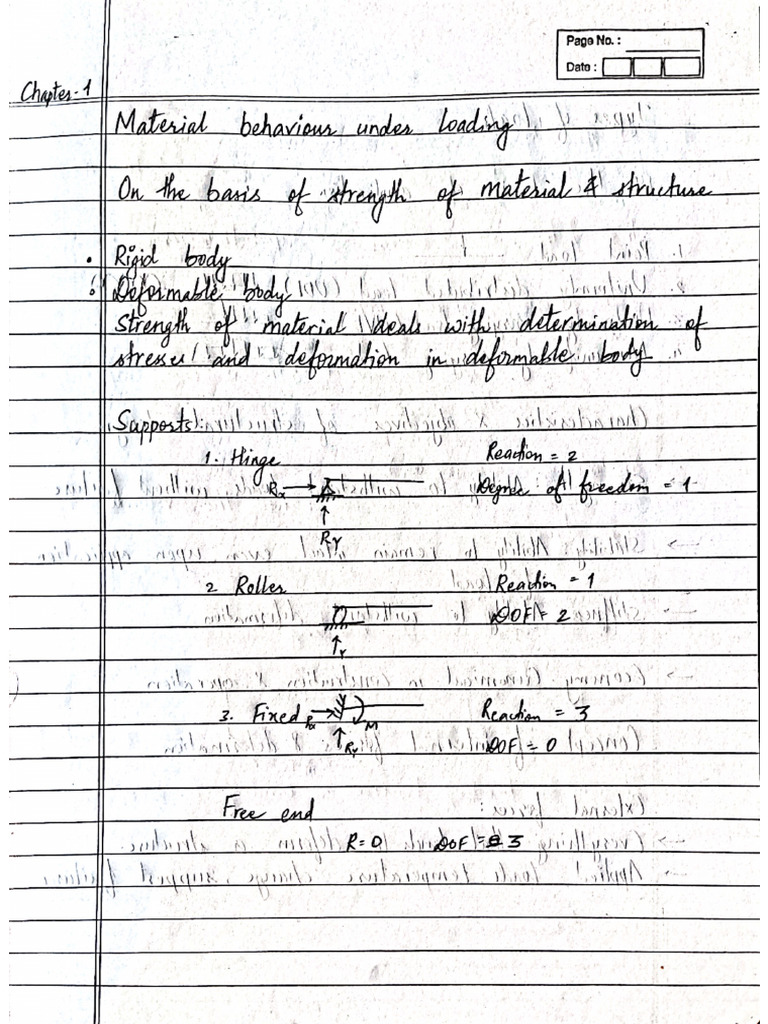 Page No. :
Date :
Chapter-1
Material behaviour under loading
On the basis of strength of material & structure
• Rigid body
• Deformable body
Strength of material deals with determination of
stresses and deformation in deformable body
Supports:
1. Hinge Reaction = 2
Rx Degree of freedom = 1
Ry
2 Roller Reaction = 1
DOF = 2
Y
3. Fixed Rx M Reaction = 3
Ry DOF = 0
Free end
R=0 DOF = 3